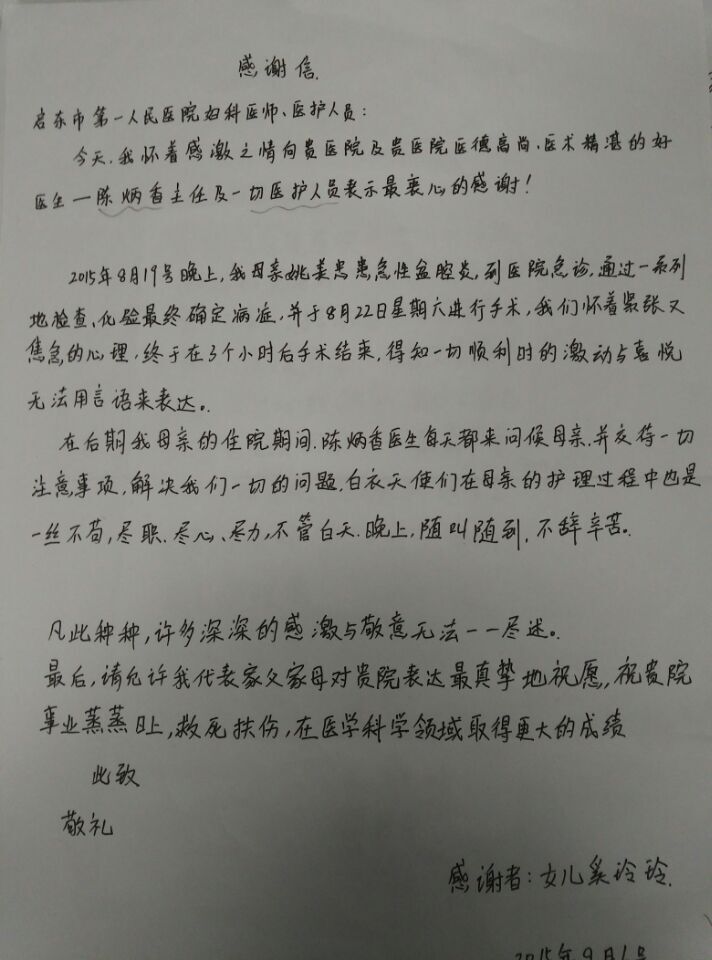 感谢信.
启东市第一人民医院妇科医师、医护人员:
今天.我怀着感激之情向贵医院及贵医院医德高尚.医术精湛的好
医生一陈炳香主任及一切医护人员表示最衷心的感谢!
2015年8月19号晚上,我母亲姚美忠患急性盆腔炎,到医院急诊,通过一系列
地检查、化验最终确定病症,并于8月22日星期六进行手术,我们怀着紧张又
焦急的心理,终于在3个小时后手术结束,得知一切顺利时的激动与喜悦
无法用言语来表达。
在后期我母亲的住院期间.陈炳香医生每天都来问候母亲.并交待一切
注意事项,解决我们一切的问题.白衣天使们在母亲的护理过程中也是
一丝不苟,尽职、尽心、尽力,不管白天.晚上,随叫随到.不辞辛苦。
凡此种种,许多深深的感激与敬意无法一一尽述。
最后,请允许我代表家父家母对贵院表达最真挚地祝愿,祝贵院
事业蒸蒸日上,救死扶伤,在医学科学领域取得更大的成绩
此致
敬礼
感谢者:女儿奚玲玲.
2015年9月1号